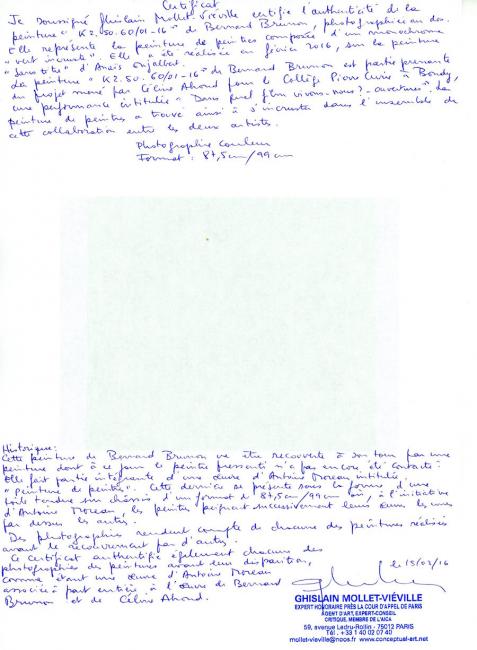 Certificat
Je soussigné Ghislain Mollet-Viéville certifie l'authenticité de la
peinture " K2.50.60/01-16 " de Bernard Brunon, photographiée au dos.
Elle représente la peinture de peintres composée d'un monochrome
" vert incruste". Elle a été réalisée en février 2016, sur la peinture
" sans titre " d'Anaïs
La peinture " K2.50.60/01-16 " de Bernard Brunon est partie prenante
du projet mené par Céline Ahond pour le Collège Pierre Curie à Bondy,
une performance intitulée " Dans quel film vivons-nous ? - ouverture". La
peinture de peintres a trouvé ainsi à s'incruster dans l'ensemble de
cette collaboration entre les deux artistes.
Photographie Couleur
Format : 87,5cm/99cm
Historique:
Cette peinture de Bernard Brunon va être recouverte à son tour par une
peinture dont à ce jour le peintre pressenti n'a pas encore été contacté.
Elle fait partie intégrante d'une œuvre d'Antoine Moreau intitulée
" Peinture de peintres". Cette dernière se présente sous la forme d'une
toile tendue sur châssis d'un format de 87,5cm/99cm où, à l'initiative
d'Antoine Moreau, les peintres peignent successivement leurs œuvres les unes
par dessus les autres.
Des photographies rendent compte de chacune des peintures réalisées
avant le recouvrement par d'autres.
Ce certificat authentifie également chacune des
photographies des peintures avant leur disparition,
comme étant une œuvre d'Antoine Moreau
associée à part entière à l'œuvre de Bernard
Brunon et de Céline Ahond.
le 15/02/16
GHISLAIN MOLLET-VIÉVILLE
EXPERT HONORAIRE PRÈS LA COUR D'APPEL DE PARIS
AGENT D'ART, EXPERT-CONSEIL
CRITIQUE, MEMBRE DE L'AICA
59, avenue Ledru-Rollin - 75012 PARIS
Tél. +33 1 40 02 07 40
mollet-vieville@noos.fr www.conceptual-art.net